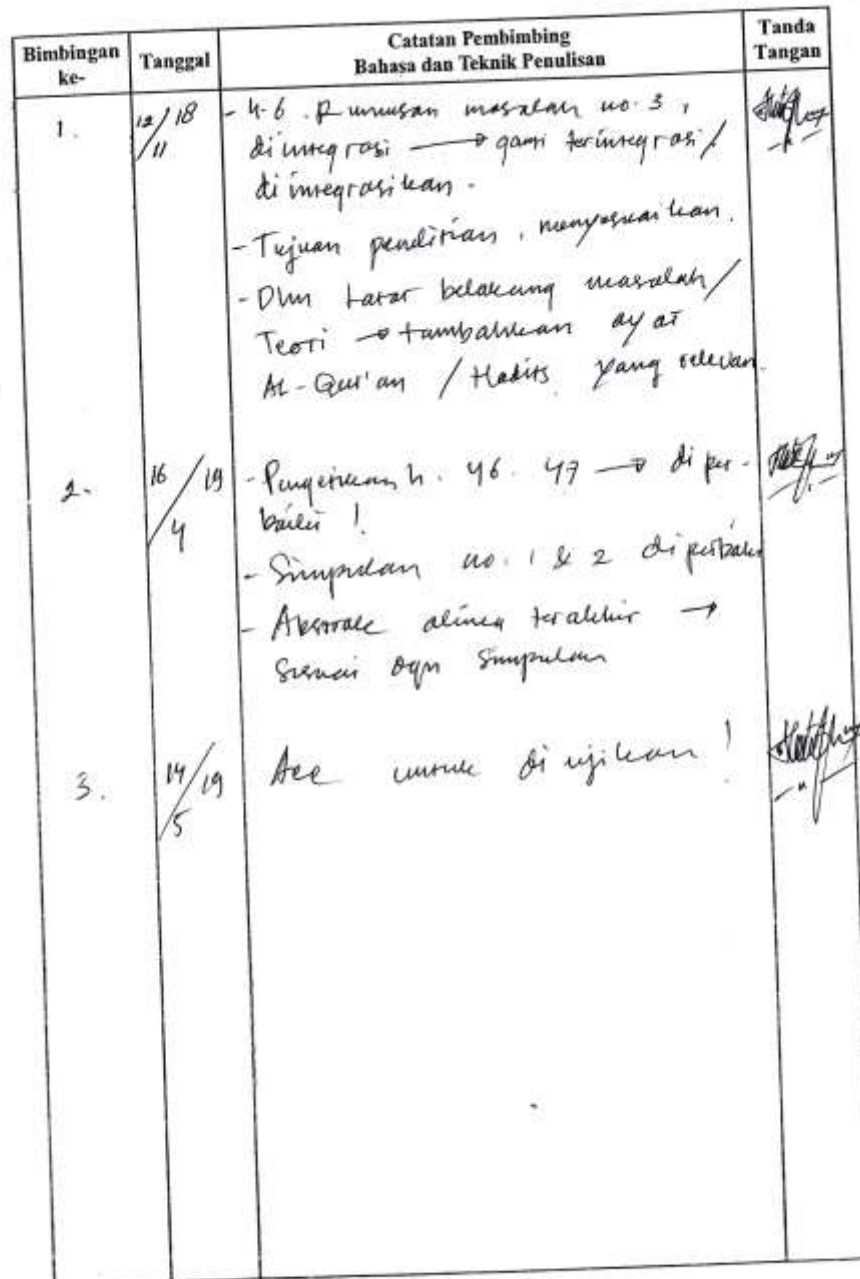 Bimbingan ke-
Tanggal
Catatan Pembimbing
Bahasa dan Teknik Penulisan
Tanda Tangan
1.
12/11 18
- h. 6. Rumusan masalah no. 3,
diintegrasi → ganti terintegrasi/
diintegrasikan.
- Tujuan penelitian, menyesuaikan.
- Dlm Latar belakang masalah/
Teori → tambahkan ayat
Al-Qur'an / Hadits yang relevan.
2.
16/4 19
- Pengetikan h. 46. 47 → diper-
baiki!
- Simpulan no. 1 & 2 diperbaiki
- Abstrak alinea terakhir →
sesuai dgn simpulan
3.
14/5 19
Acc untuk diujikan!